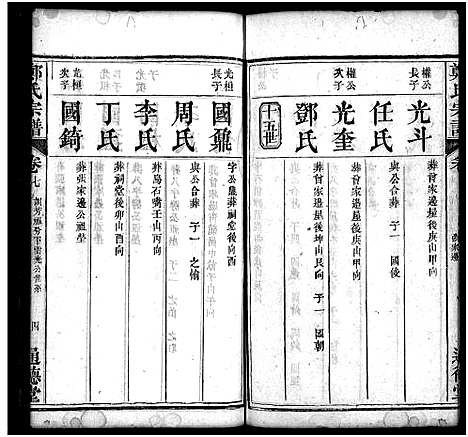 權公長子
光斗
葬曾家邊屋後庚山甲向
任氏
與公合葬 子一 國後
權公次子
光奎
葬曾家邊屋後庚山甲向
鄧氏
葬曾家邊屋後坤山艮向 子一 國朝
十五世
光桓長子
國鼐
字公鼐葬祠堂後向西
周氏
與公合葬 子一 之愉
李氏
葬烏石嘴壬山丙向
丁氏
葬祠堂後卯山酉向
光桓次子
國錡
葬張家邊公祖塋
鄭氏宗譜
卷七
四
通德堂